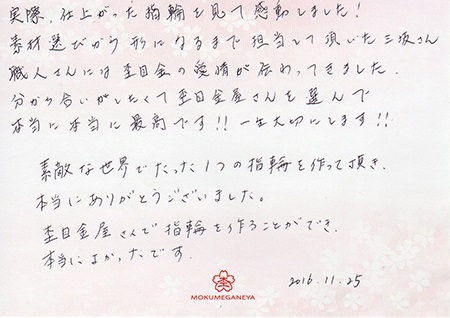 実際、仕上がった指輪を見て感動しました!
素材選びから形になるまで担当して頂いた三坂さん
職人さんには杢目金の愛情が伝わってきました.
分かち合いがしたくて杢目金屋さんを選んで
本当に本当に最高です!!一生大切にします!!
素敵な世界でたった1つの指輪を作って頂き、
本当にありがとうございました。
杢目金屋さんで指輪を作ることができ、
本当によかったです.
2016.11.25
MOKUMEGANEYA